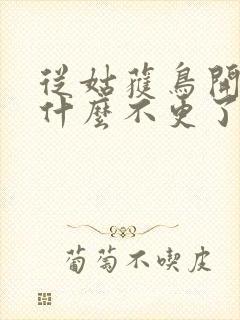 從姑獲鳥開
什麼不更了
葡萄不喫皮